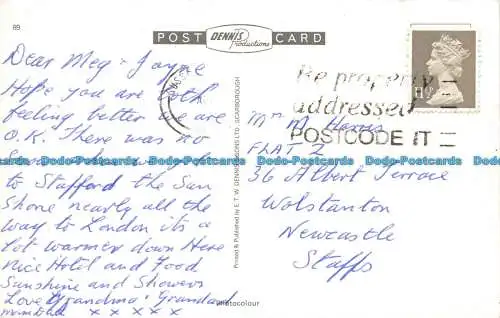 89
POST CARD
DENNIS
Productions
Dear Meg & Jayne
Hope you are both
feeling better we are
O.K. There was no
to Stafford the Sun
Shone nearly all the
way to London its a
lot warmer down Here
nice Hotel and Food
Sunshine and Showers
Love Grandma & Grandad
x x x x x
Printed & Published by E. T. W. DENNIS & SONS LTD., SCARBOROUGH
Photocolour
Be properly
addressed
POSTCODE IT
Mrs M Harris
FLAT 2
36 Albert Terrace
Wolstanton
Newcastle
Staffs
Dodo-Postcards Dodo-Postcards Dodo-Postcards Dodo-Postcards Dodo-Postcards